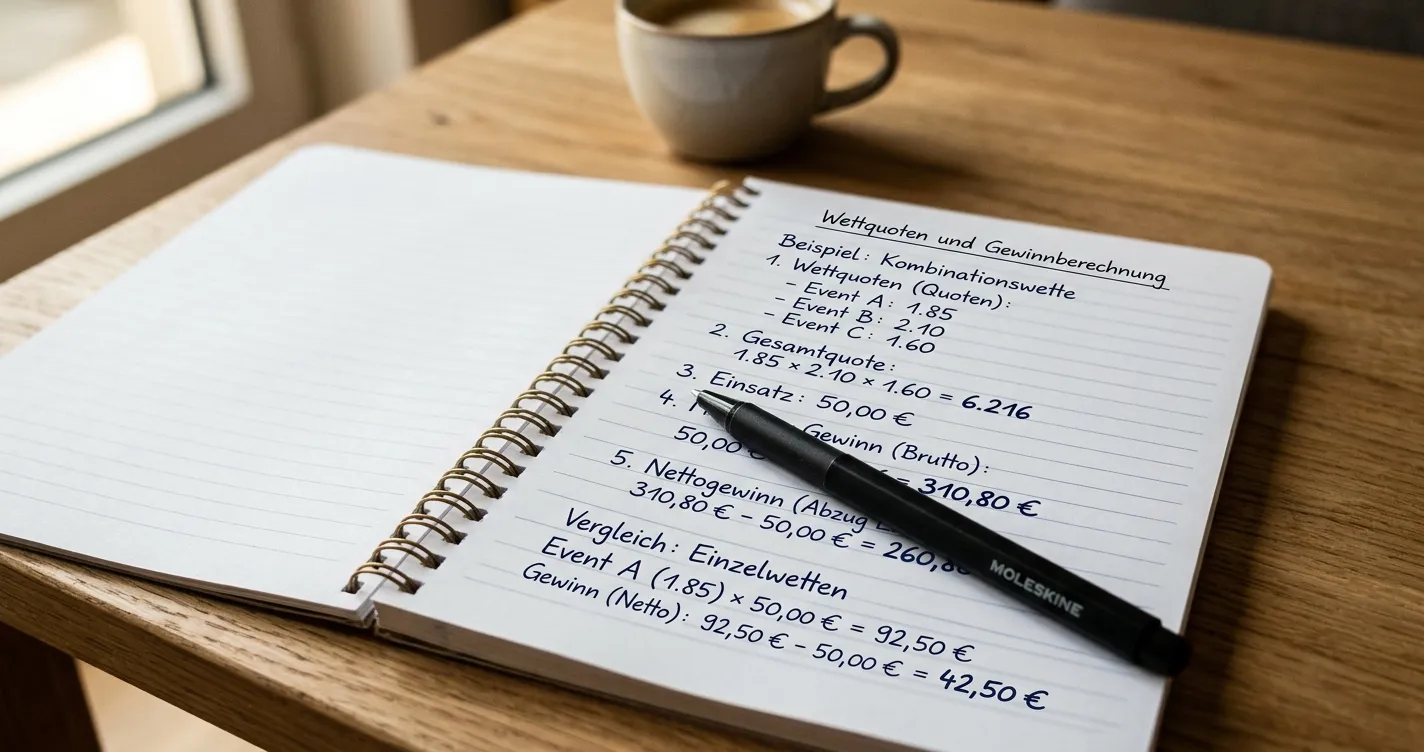 Wettquoten und Gewinnberechnung
Beispiel: Kombinationswette
1. Wettquoten (Quoten):
- Event A: 1.85
- Event B: 2.10
- Event C: 1.60
2. Gesamtquote:
1.85 × 2.10 × 1.60 = 6.216
3. Einsatz: 50,00 €
4. Gewinn (Brutto):
50,00 € = 310,80 €
5. Nettogewinn (Abzug
310,80 € – 50,00 € = 260,8
Vergleich: Einzelwetten
Event A (1.85) × 50,00 € = 92,50 €
Gewinn (Netto): 92,50 € – 50,00 € = 42,50 €
MOLESKINE